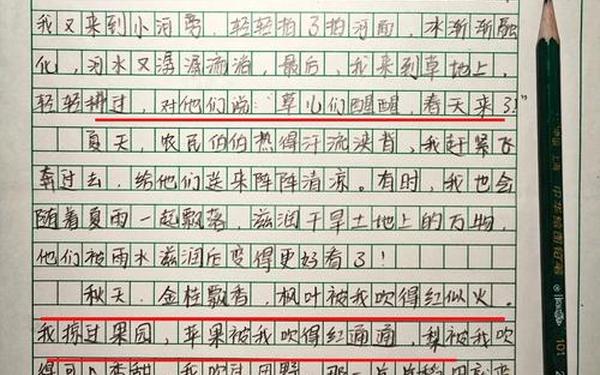 我又来到小河旁，轻轻拍了拍河面，冰渐渐融
化，河水又潺潺流淌，最后，我来到草地上，
轻轻拂过，对他们说：“草儿们醒醒，春天来了！”
夏天，农民伯伯热得汗流浃背，我赶紧飞
奔过去，给他们送来阵阵清凉。有时，我也会
随着夏雨一起飘落，滋润干旱土地上的万物，
他们被雨水滋润后变得更好看了！
秋天，金桂飘香，枫叶被我吹得红似火。
我掠过果园，苹果被我吹得红通通，梨被我吹
得可口香甜，我吹过田野，那一片片
中国 上海 中华绘图铅笔
101